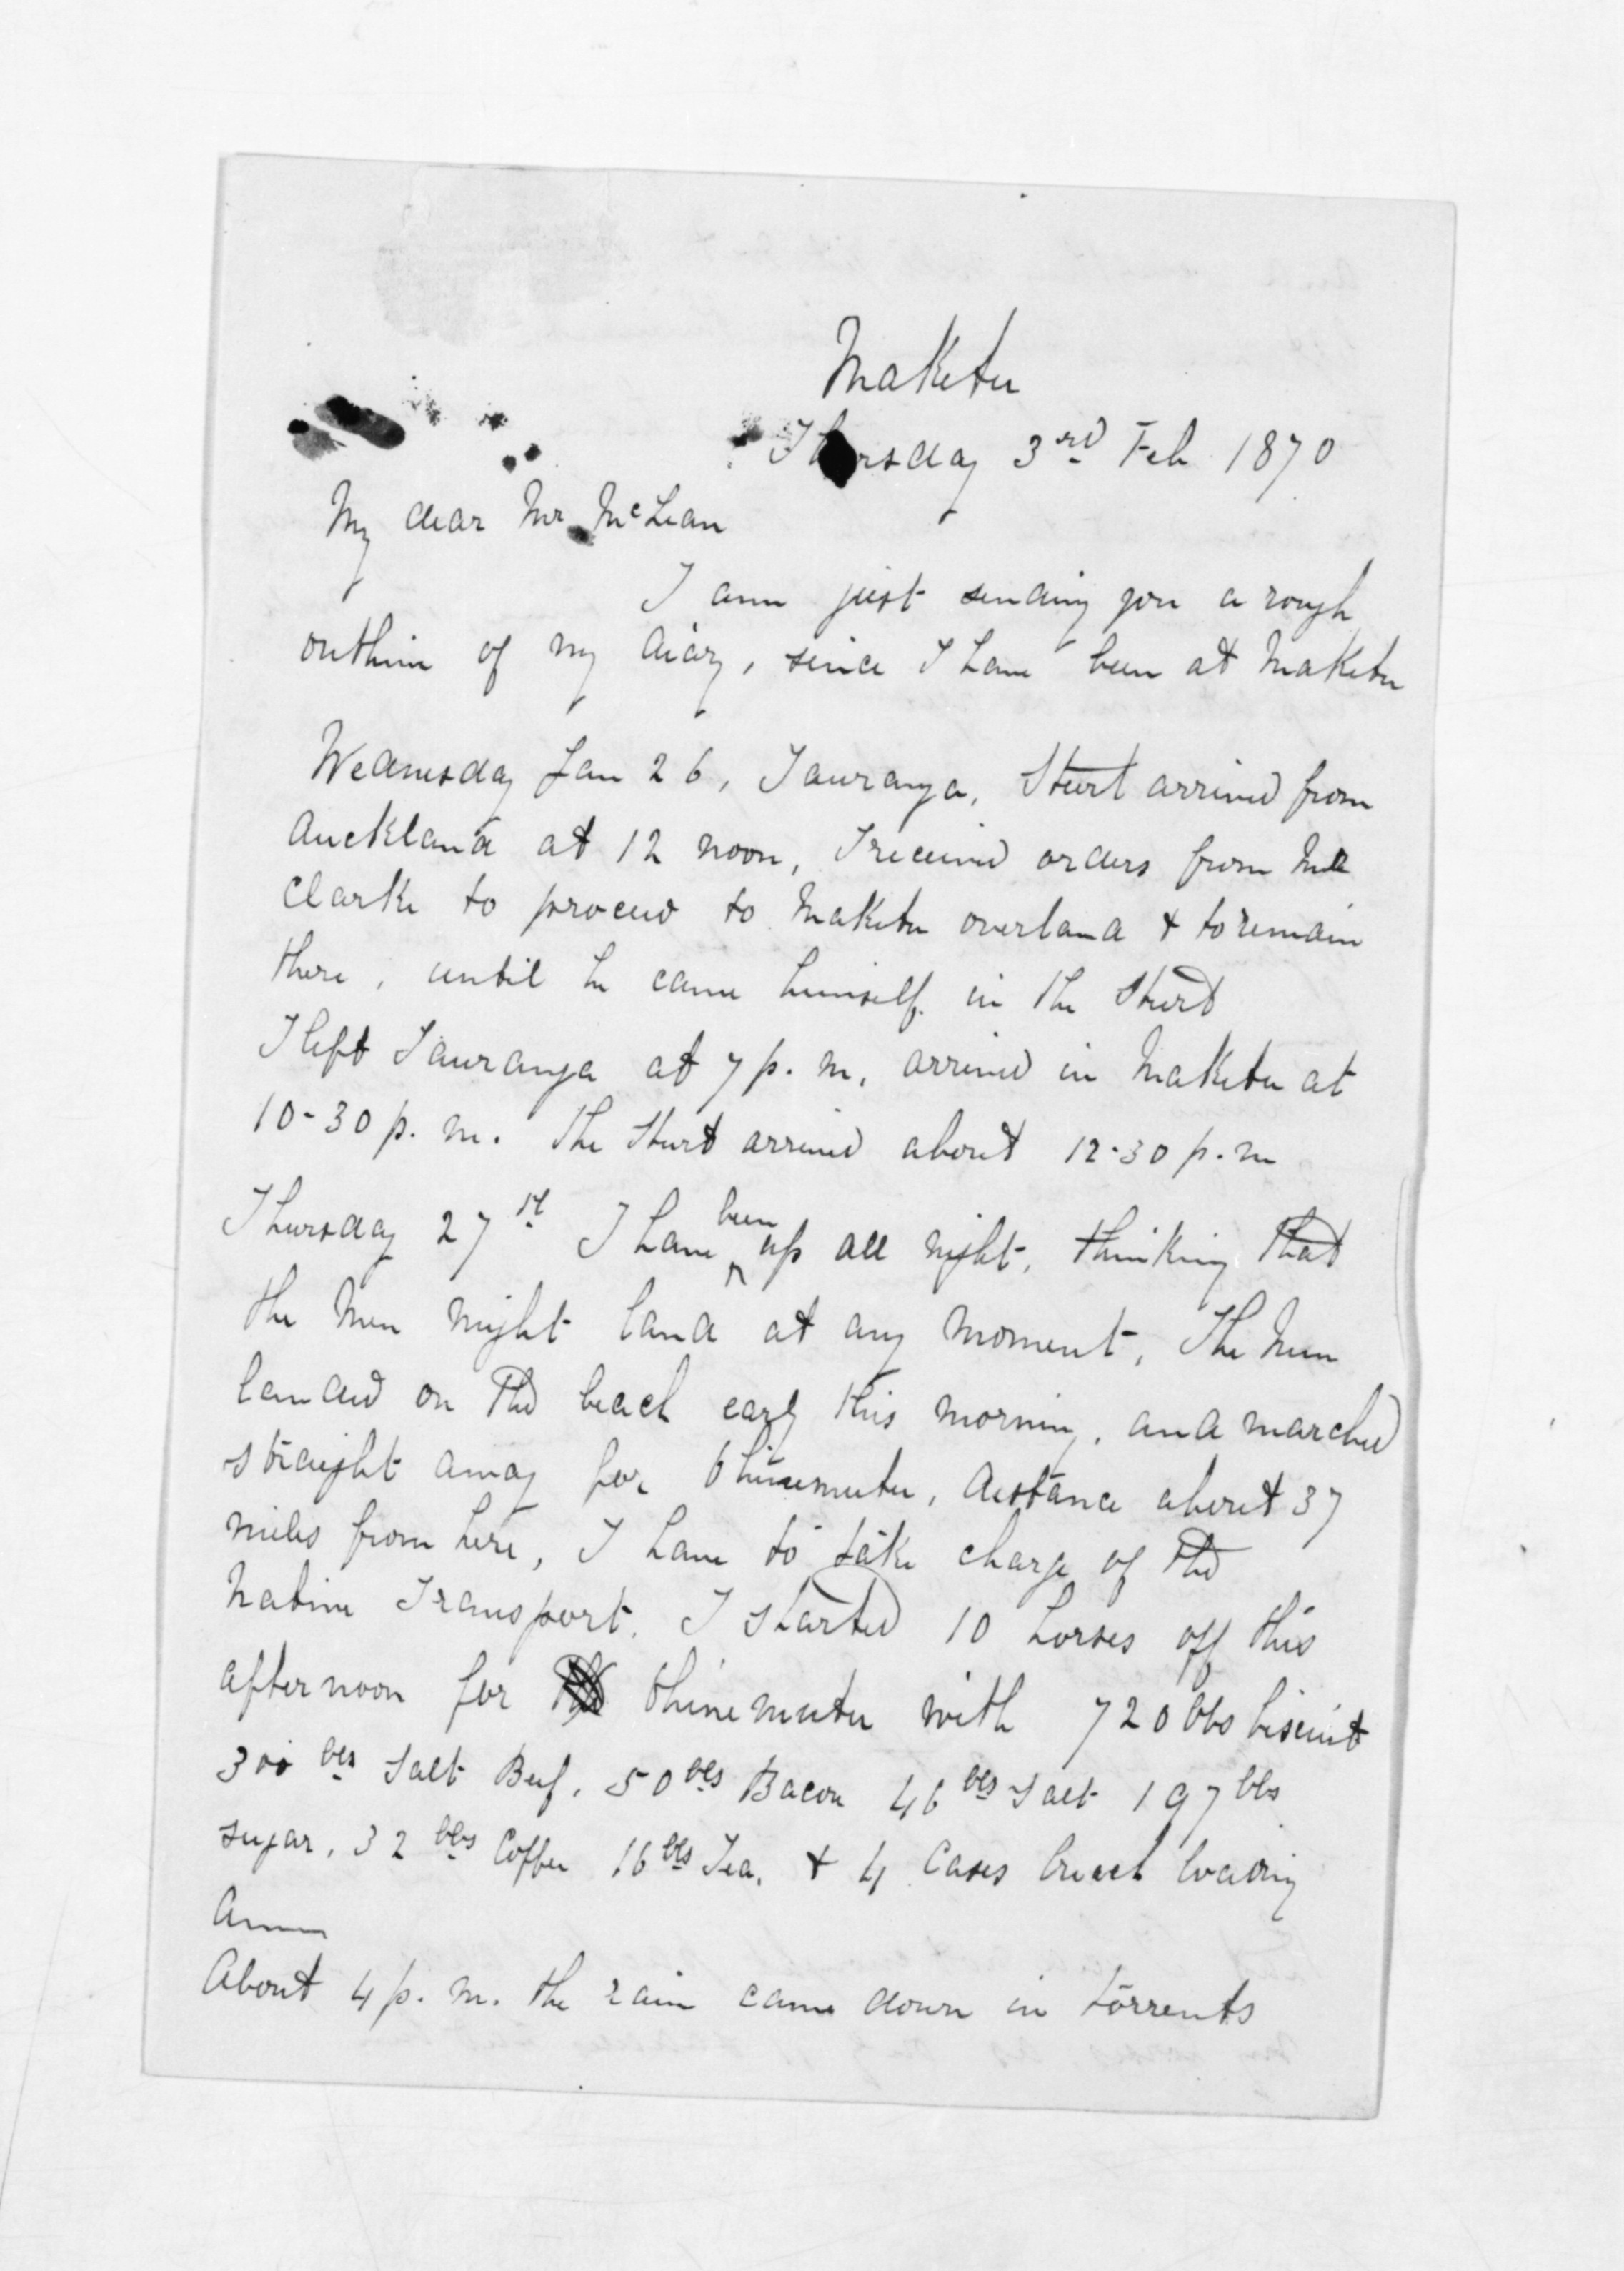 Maketu
Thursday 3rd Feb 1870
My dear Mr McLean
I am just sending you a rough
outline of my diary, since I have been at Maketu
Wednesday Jan 26, Tauranga, Sturt arrived from
Auckland at 12 noon, I received orders from Mr
Clarke to proceed to Maketu overland & to remain
there, until he came himself in the Sturt
I left Tauranga at 7 p.m, arrived in Maketu at
10-30 p.m. The Sturt arrived about 12-30 p.m
Thursday 27st I have been up all night, thinking that
the Men might land at any moment, The Men
landed on the beach early this morning, and marched
straight away for Ohinemutu, distance about 37
miles from here, I have to take charge of the
Native Transport. I started 10 horses off this
afternoon for Ohinemutu with 720 lbs biscuit
300 lbs Salt Beef, 50 lbs Bacon 46 lbs Salt 197 lbs
sugar, 32 lbs Coffee 16 lbs Tea, & 4 Cases breech loading
Amm
About 4 p.m. the rain came down in torrents